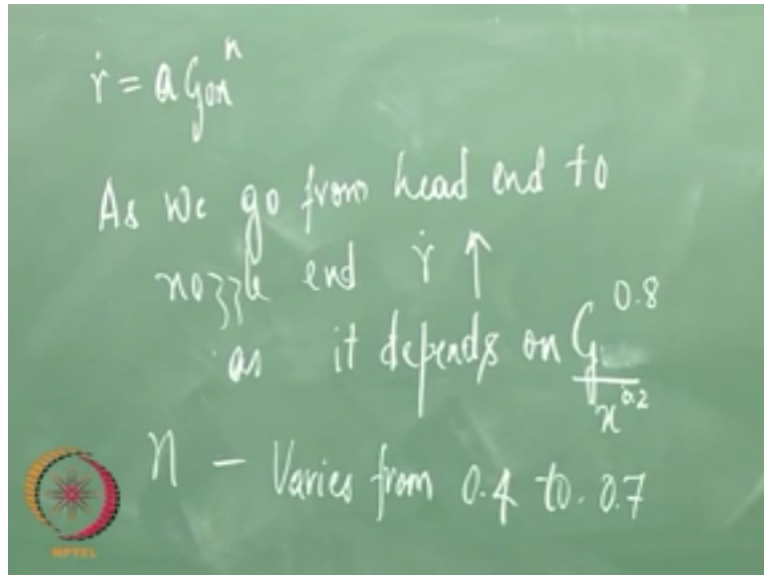 ṙ = a Gox^n
As we go from head end to
nozzle end ṙ ↑
as it depends on G^0.8 / x^0.2
n - Varies from 0.4 to 0.7
NPTEL